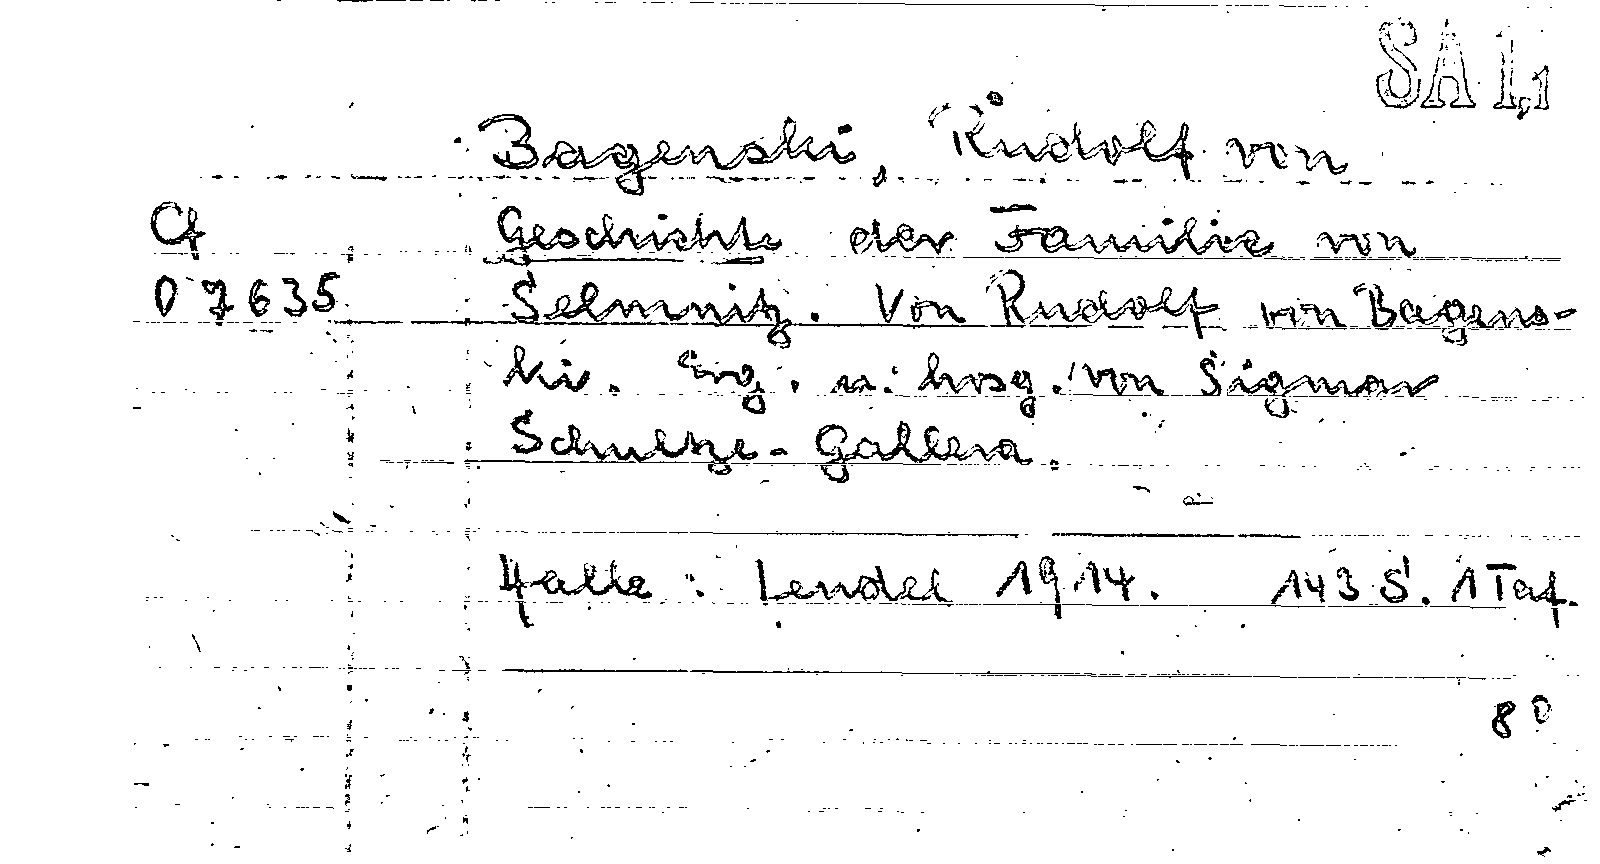 SA 1,1
Bagenski, Rudolf von
Cf Geschichte der Familie von
07635 Selmnitz. Von Rudolf von Bagens-
ki. Erg. u. hrsg. von Sigmar
Schultze-Gallera.
Halle: Lendel 1914. 143 S. 1 Taf.
8°